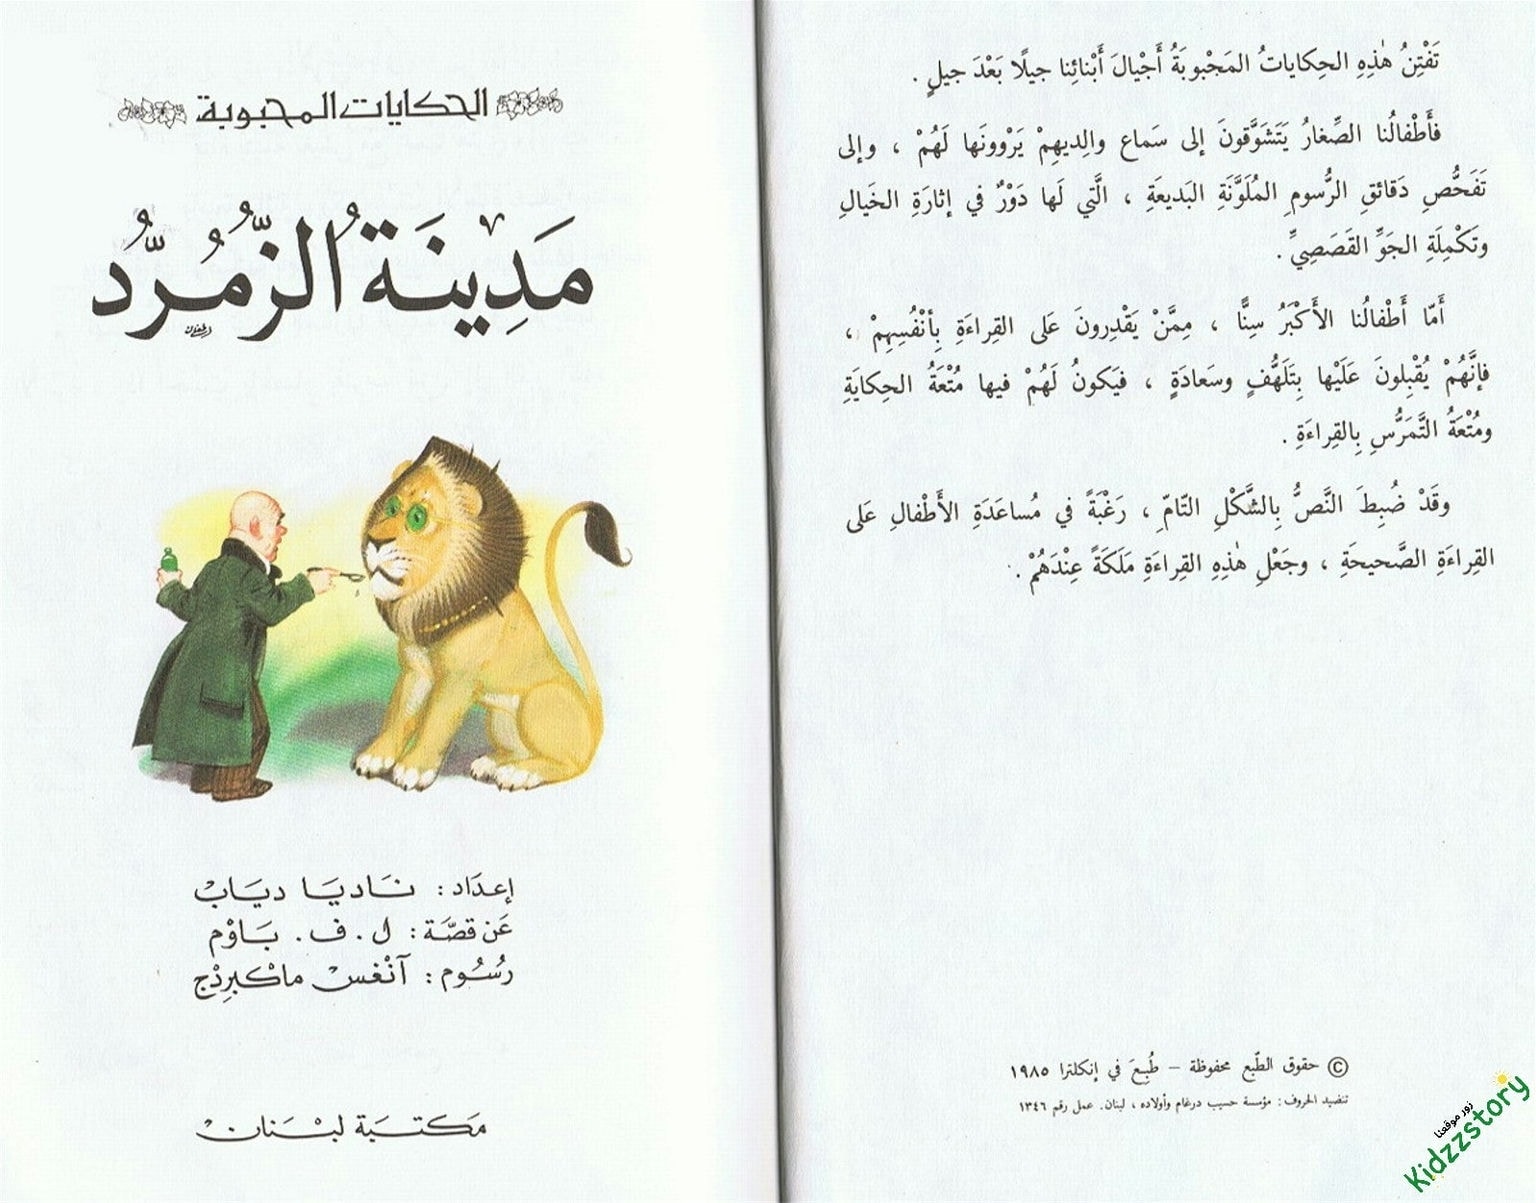 تَفْتِنُ هٰذِهِ الحِكاياتُ المَحْبوبَةُ أَجْيالَ أَبْنائِنا جيلًا بَعْدَ جيلٍ .
فأَطْفالُنا الصِّغارُ يَتَشَوَّقونَ إلى سَماع والِديهِمْ يَرْوونَها لَهُمْ ، وإلى
تَفَحُّصِ دَقائقِ الرُّسومِ المُلَوَّنَةِ البَديعَةِ ، الَّتي لَها دَوْرٌ في إثارَةِ الخَيالِ
وتَكْمِلَةِ الجَوِّ القَصَصِيِّ .
أَمّا أَطْفالُنا الأَكْبَرُ سِنًّا ، مِمَّنْ يَقْدِرونَ عَلى القِراءَةِ بِأنْفُسِهِمْ ،
فإنَّهُمْ يُقْبِلونَ عَلَيْها بِتَلَهُّفٍ وسَعادَةٍ ، فيَكونُ لَهُمْ فيها مُتْعَةُ الحِكايَةِ
ومُتْعَةُ التَّمَرُّسِ بِالقِراءَةِ .
وقَدْ ضُبِطَ النَّصُّ بِالشَّكْلِ التّامِّ ، رَغْبَةً في مُساعَدَةِ الأَطْفالِ عَلى
القِراءَةِ الصَّحيحَةِ ، وجَعْلِ هٰذِهِ القِراءَةِ مَلَكَةً عِنْدَهُمْ .
© حقوق الطّبع محفوظة – طُبِعَ في إنكلترا ١٩٨٥
تنضيد الحروف: مؤسسة حسيب درغام وأولاده ، لبنان. عمل رقم ١٣٤٦
زور موقعنا
Kidzzstory
الحكايات المحبوبة
مَدِينَةُ الزُّمُرُّد
إعدَاد: نَاديَا ديَابْ
عَن قصَّة: ل. ف. بَاوْم
رسُوم: آنْغسْ ماكْبرِدْج
مَكتبَة لبْنَان